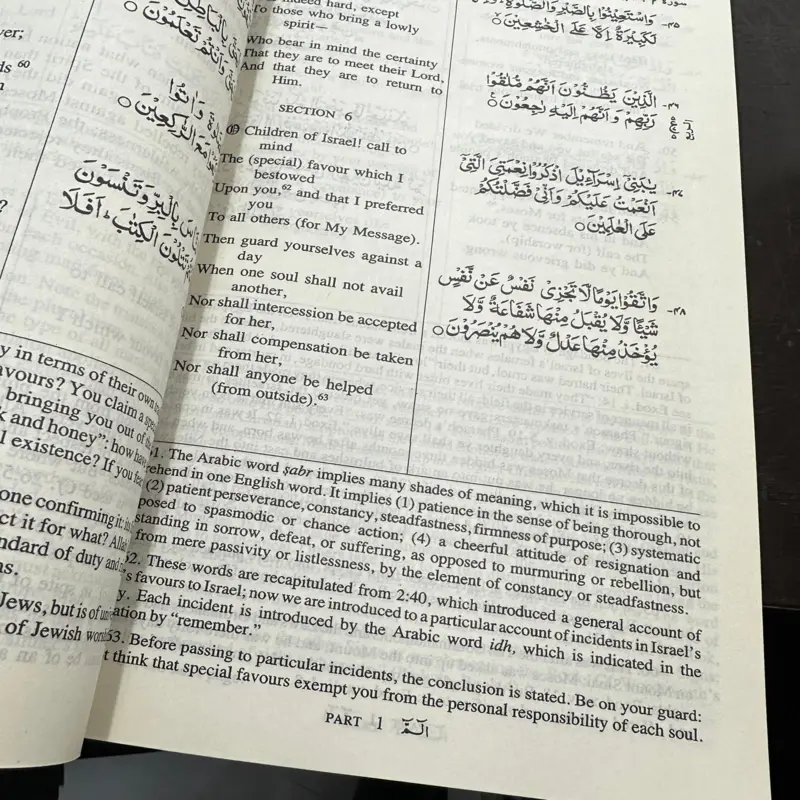 indeed hard, except
To those who bring a lowly
spirit—
Who bear in mind the certainty
That they are to meet their Lord,
And that they are to return to
Him.
SECTION 6
Children of Israel! call to
mind
The (special) favour which I
bestowed
Upon you,⁶² and that I preferred
you
To all others (for My Message).
Then guard yourselves against a
day
When one soul shall not avail
another,
Nor shall intercession be accepted
for her,
Nor shall compensation be taken
from her,
Nor shall anyone be helped
(from outside).⁶³
٤٥- وَاسْتَعِينُوا بِالصَّبْرِ وَالصَّلَوٰةِ
لَكَبِيرَةٌ إِلَّا عَلَى الْخٰشِعِينَ ○
٤٦- الَّذِينَ يَظُنُّونَ أَنَّهُمْ مُلٰقُوا
رَبِّهِمْ وَأَنَّهُمْ إِلَيْهِ رٰجِعُونَ ○
٤٧- يٰبَنِيٓ إِسْرَآءِيلَ اذْكُرُوا نِعْمَتِيَ الَّتِيٓ
أَنْعَمْتُ عَلَيْكُمْ وَأَنِّي فَضَّلْتُكُمْ
عَلَى الْعٰلَمِينَ ○
٤٨- وَاتَّقُوا يَوْمًا لَّا تَجْزِي نَفْسٌ عَنْ نَّفْسٍ
شَيْئًا وَّلَا يُقْبَلُ مِنْهَا شَفَاعَةٌ وَّلَا
يُؤْخَذُ مِنْهَا عَدْلٌ وَّلَا هُمْ يُنْصَرُونَ ○
y in terms of their own
avours? You claim a
bringing you out of
k and honey": how
l existence? If you
one confirming it:
ct it for what?
ndard of duty and
ns.
Jews, but is of
of Jewish
1. The Arabic word ṣabr implies many shades of meaning, which it is impossible to
rehend in one English word. It implies (1) patience in the sense of being thorough, not
(2) patient perseverance, constancy, steadfastness, firmness of purpose; (3) systematic
posed to spasmodic or chance action; (4) a cheerful attitude of resignation and
standing in sorrow, defeat, or suffering, as opposed to murmuring or rebellion, but
from mere passivity or listlessness, by the element of constancy or steadfastness.
62. These words are recapitulated from 2:40, which introduced a general account of
's favours to Israel; now we are introduced to a particular account of incidents in Israel's
y. Each incident is introduced by the Arabic word idh, which is indicated in the
ation by "remember."
63. Before passing to particular incidents, the conclusion is stated. Be on your guard:
t think that special favours exempt you from the personal responsibility of each soul.
PART 1 الٓمّٓ